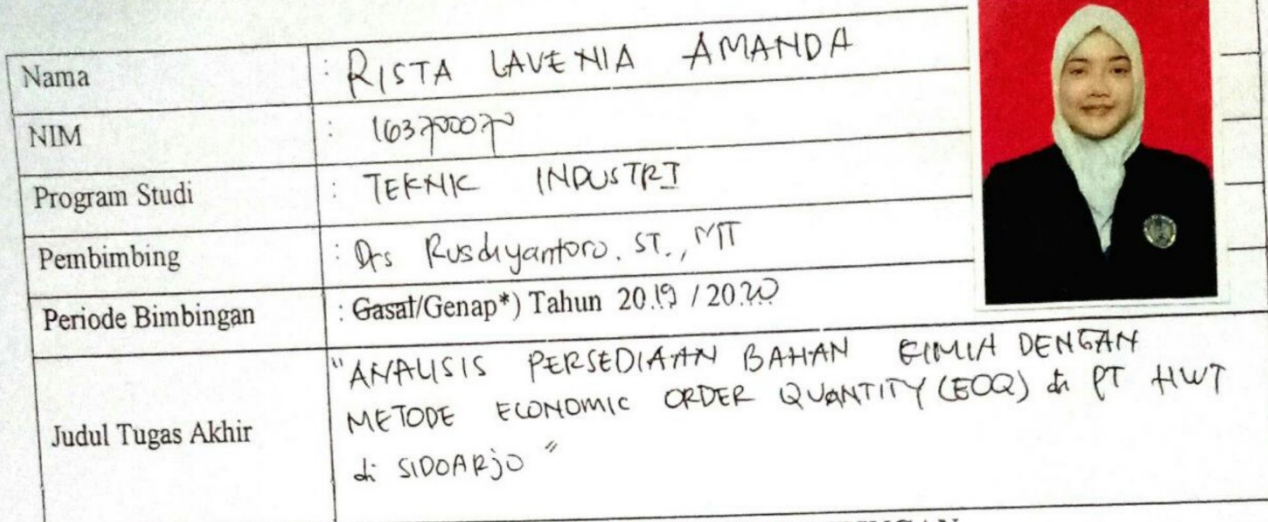 Nama : RISTA LAVENIA AMANDA
NIM : 163700070
Program Studi : TEKNIK INDUSTRI
Pembimbing : Drs Rusdiyantoro. ST., MT
Periode Bimbingan : Gasal/Genap*) Tahun 2019 / 2020
Judul Tugas Akhir
"ANALISIS PERSEDIAAN BAHAN KIMIA DENGAN
METODE ECONOMIC ORDER QUANTITY (EOQ) di PT HWT
di SIDOARJO"